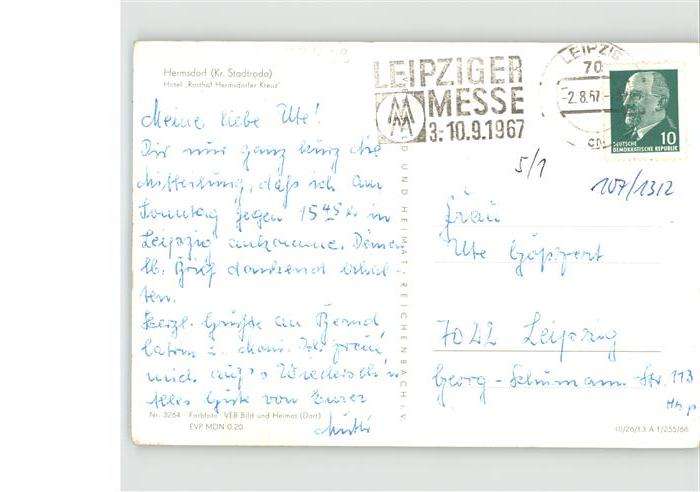 Hermsdorf (Kr. Stadtroda)
Hotel „Rasthof Hermsdorfer Kreuz"
LEIPZIGER
MESSE
3.-10.9.1967
LEIPZIG
70
-2.8.67-
DEUTSCHE
DEMOKRATISCHE REPUBLIK
10
5/1
107/1312
Meine liebe Ute!
Dir nur ganz kurz die
Mitteilung, daß ich am
Sonntag gegen 15 45 h in
Leipzig ankomme. Deinen
lb. Brief dankend erhal
ten.
Herzl. Grüße an Bernd,
freu
mich auf's Wiederseh'n
Alles Gute von Eurer
Mutti
Frau
Ute Göpfert
7042 Leipzig
Georg-Schumann-Str. 113
BILD UND HEIMAT, REICHENBACH I. V.
Nr. 3264 Farbfoto: VEB Bild und Heimat (Darr)
EVP MDN 0.20
III/26/13 A 1/255/66